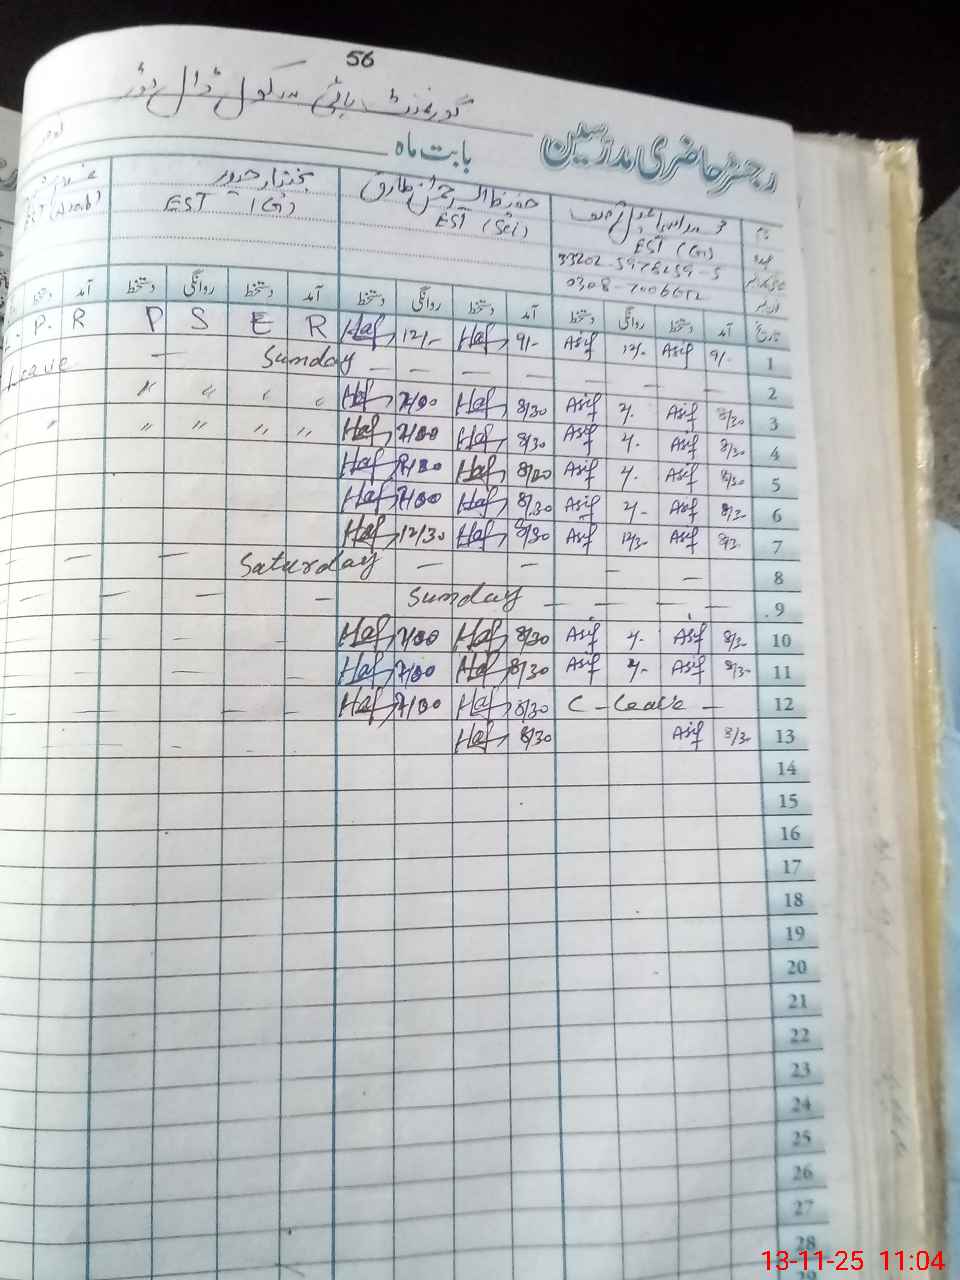 56
گورنمنٹ ہائی سکول
رجسٹر حاضری مدرسین بابت ماہ
نام
عہدہ
EST (G) EST (Sci) EST (G)
33202-5978259-5
0308-7006612
تاریخ آمد دستخط روانگی دستخط آمد دستخط روانگی دستخط آمد دستخط روانگی دستخط آمد دستخط
1 9/- Asif 12/- Asif 9/- Haf 12/- Haf R E S P R P.
2 — — — — — — Sunday — Leave
3 8/30 Asif 2/- Asif 8/30 Haf 2/00 Haf " " " "
4 8/30 Asif 2/- Asif 8/30 Haf 2/00 Haf " " " " "
5 8/30 Asif 2/- Asif 8/00 Haf 2/00 Haf
6 8/30 Asif 2/- Asif 8/30 Haf 2/00 Haf
7 8/30 Asif 12/30 Asif 8/30 Haf 12/30 Haf
8 — — — — Saturday — —
9 — — — — Sunday — — — —
10 8/30 Asif 2/- Asif 8/30 Haf 2/00 Haf — — — —
11 8/30 Asif 2/- Asif 8/30 Haf 2/00 Haf — — — —
12 C-Leave — 8/30 Haf 2/00 Haf — — — —
13 8/30 Asif 8/30 Haf — — — —
14
15
16
17
18
19
20
21
22
23
24
25
26
27
28
29
13-11-25 11:04